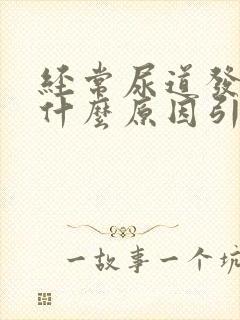 經常尿道發
什麼原因引
一故事一个坑